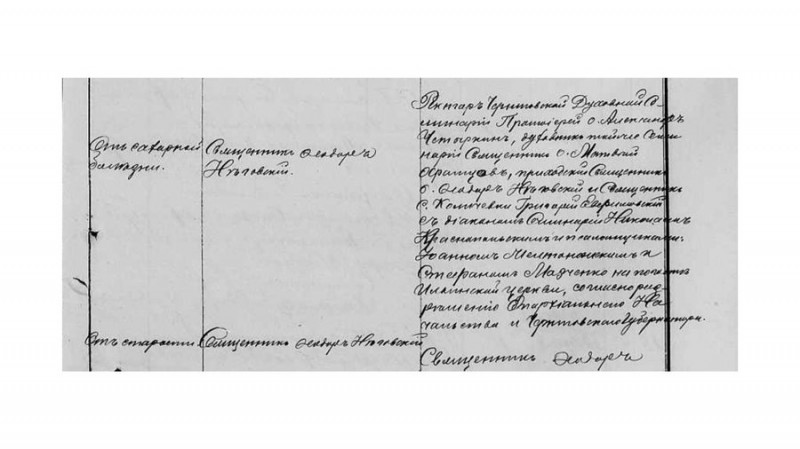 Отъ сахарной
болѣзни.
Священникъ Ѳеодоръ
Нѣговскій.
Ректоръ Черниговской Духовной Се-
минаріи Протоіерей о. Александръ
Четыркинъ, духовникъ той же Семи-
наріи Священникъ о. Матвѣй
приходскій Священникъ
о. Ѳеодоръ Нѣговскій и Священникъ
с. Григорій
съ діакономъ Семинаріи Николаемъ
и псаломщиками:
Іоанномъ и
Стефаномъ Марченко на погостѣ
Ильинской церкви, согласно раз-
рѣшенію Епархіальнаго На-
чальства и Черниговскаго Губернатора.
Отъ старости Священникъ Ѳеодоръ Нѣговскій
Священникъ Ѳеодоръ